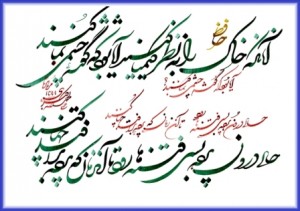 حافظ
آنانکه خاک را به نظر کیمیا کنند آیا بود که گوشه چشمی بما کنند
آیا بود که گوشه چشمی بما کنند
حالی درون پرده بسی فتنه میرود تا آن زمان که پرده برافتد چها کنند
حالی درون پرده بسی فتنه میرود تا آن زمان که پرده برافتد چها کنند